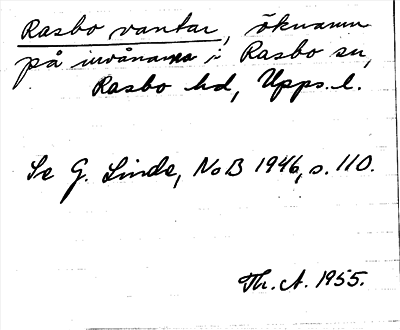 Rasbo vantar, öknamn
på invånarna i Rasbo sn,
Rasbo hd, Upps. l.
Se G. Linde, NoB 1946, s. 110.
Th. A. 1955.